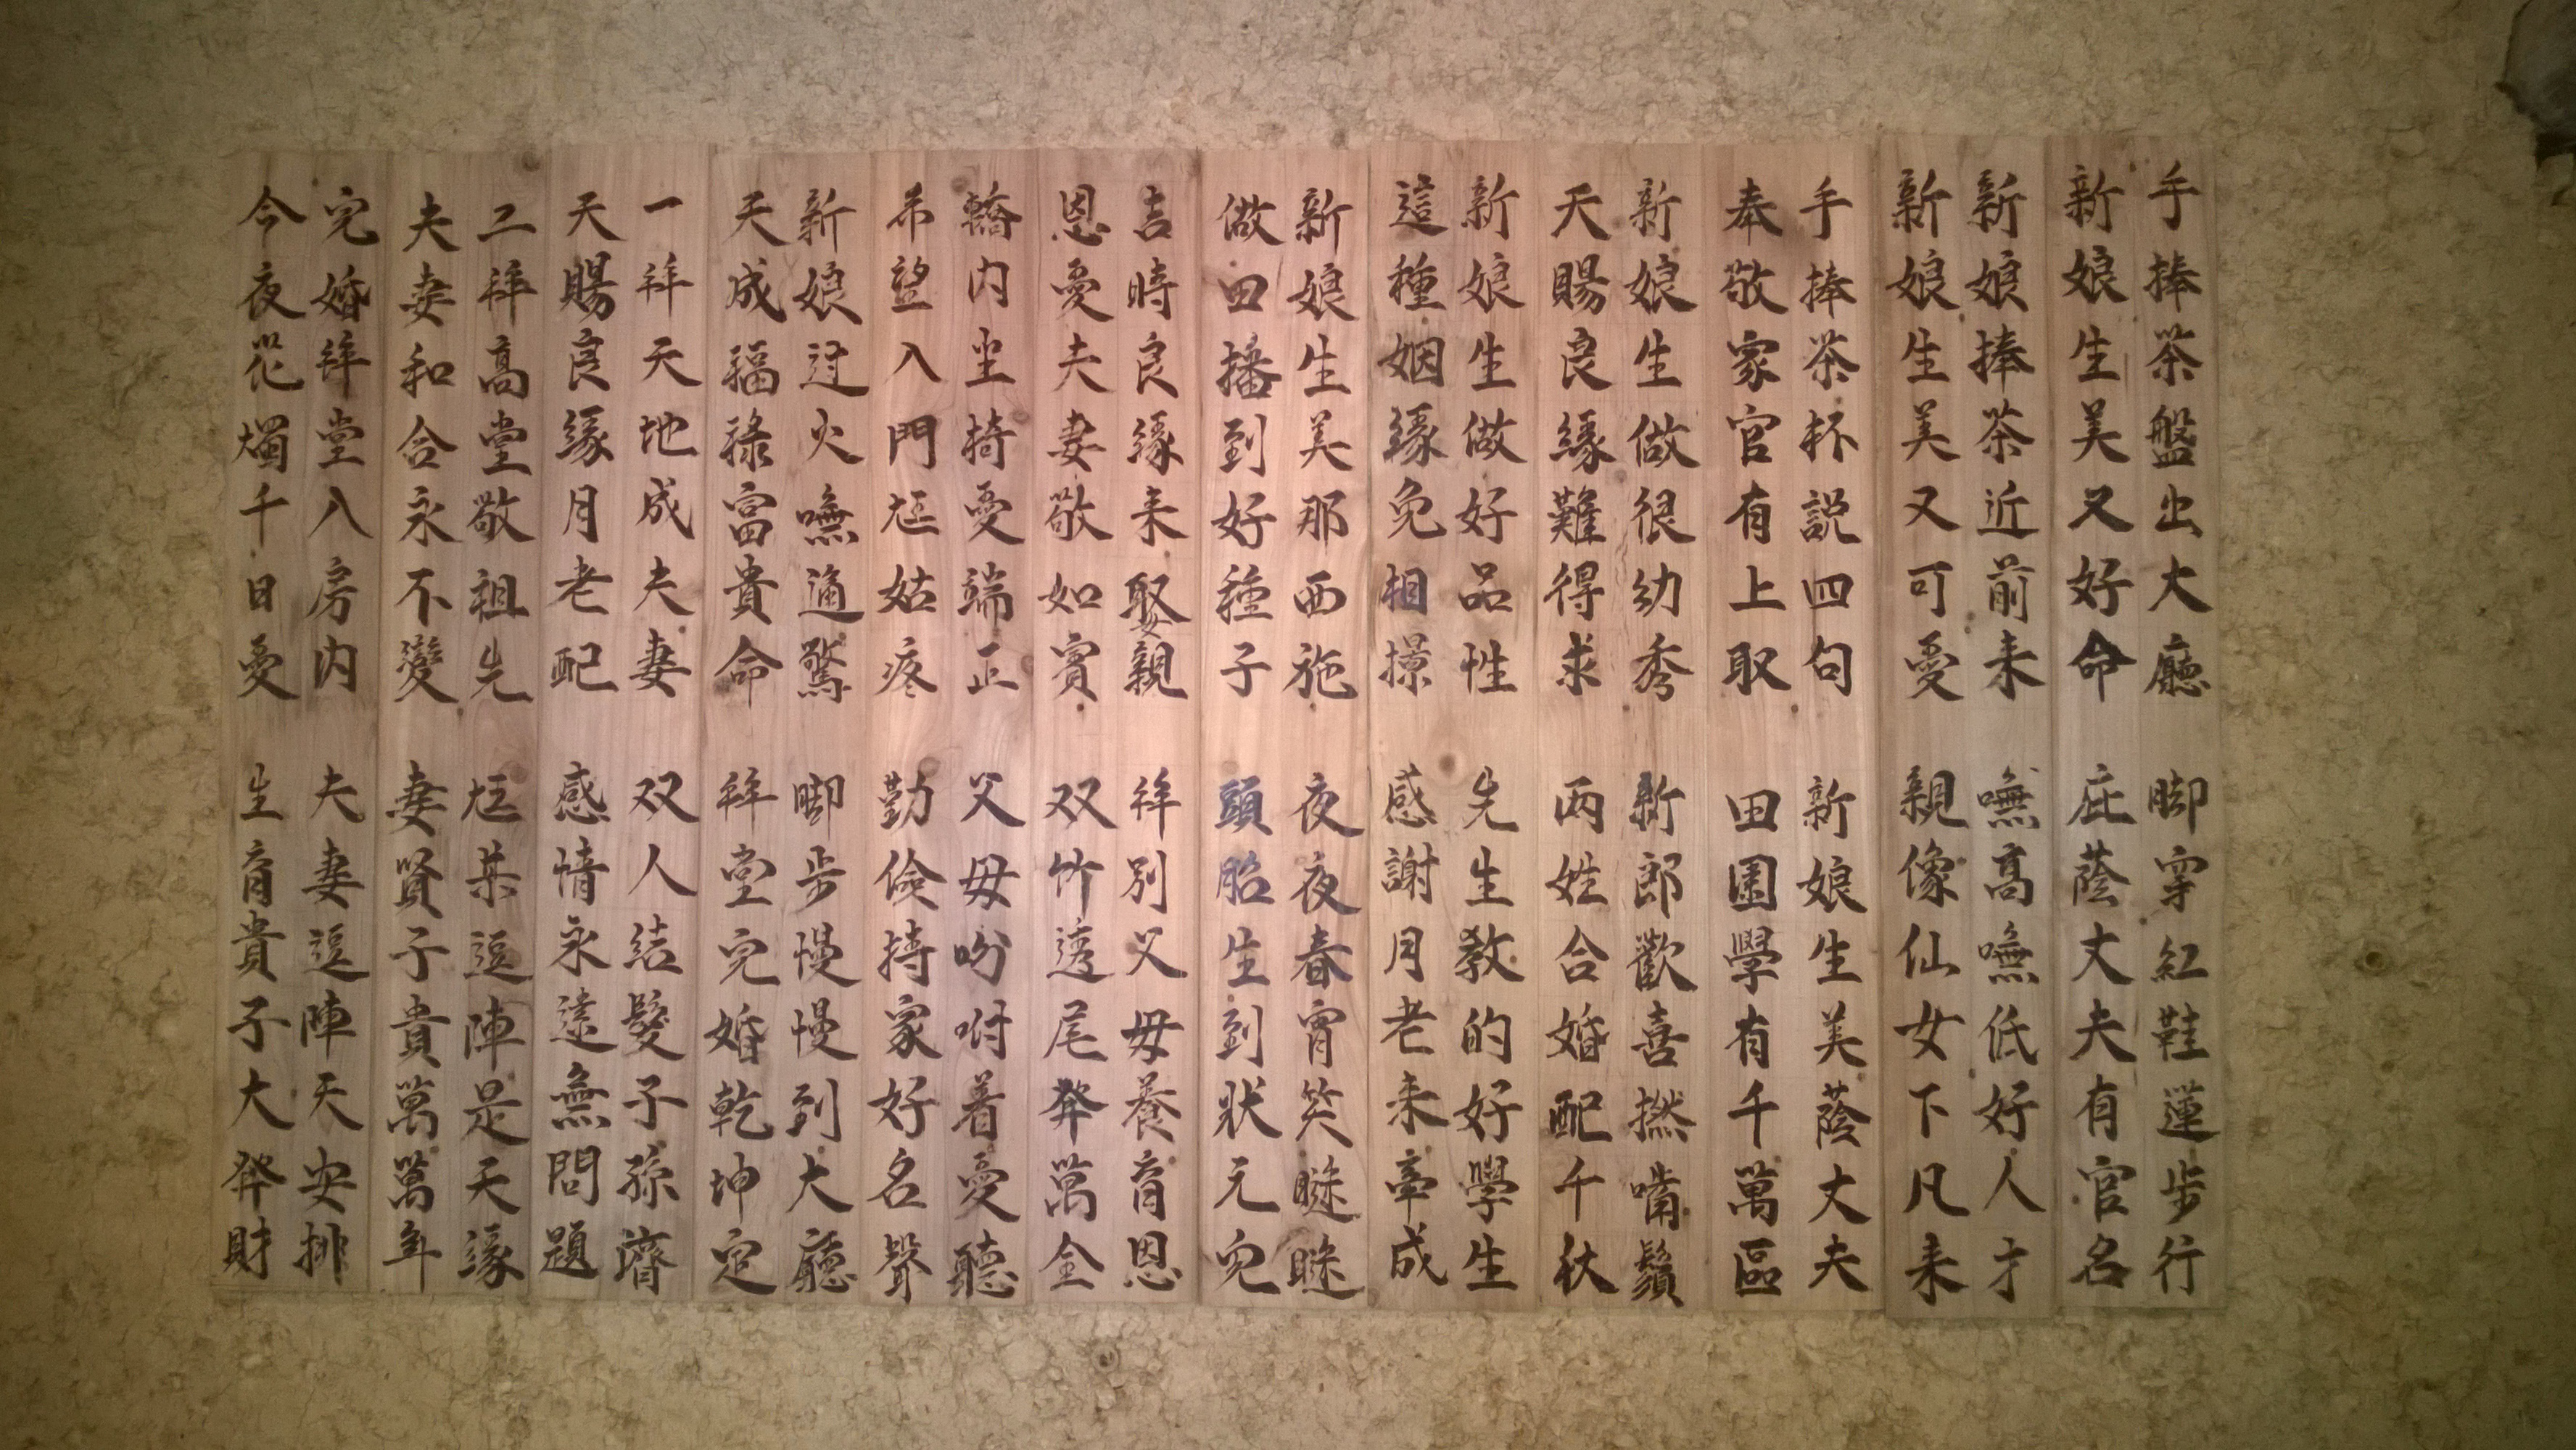 手捧茶盤出大廳 脚穿紅鞋蓮步行
新娘生美又好命 庇蔭丈夫有官名
新娘捧茶近前来 嘸高嘸低好人才
新娘生美又可愛 親像仙女下凡来
手捧茶杯説四句 新娘生美蔭丈夫
奉敬家官有上取 田園學有千萬區
新娘生做很幼秀 新郎歡喜撚嘴鬚
天賜良緣難得求 两姓合婚配千秋
新娘生做好品性 先生教的好學生
這種姻緣免相掠 感謝月老来牽成
新娘生美那西施 夜夜春宵笑瞇瞇
做田播到好種子 頭胎生到狀元兒
吉時良緣来娶親 拜别父母養育恩
恩愛夫妻敬如賓 双竹透尾發萬金
轎内坐椅愛端正 父母吩咐着愛聽
希望入門尪姑疼 勤儉持家好名聲
新娘过火嘸通驚 脚步慢慢到大廳
天成福祿富貴命 拜堂完婚乾坤定
一拜天地成夫妻 双人結髮子孫濟
天賜良緣月老配 感情永遠無問題
二拜高堂敬祖先 尪某逗陣是天緣
夫妻和合永不變 妻賢子貴萬萬年
完婚拜堂入房内 夫妻逗陣天安排
今夜花燭千日愛 生育貴子大發財